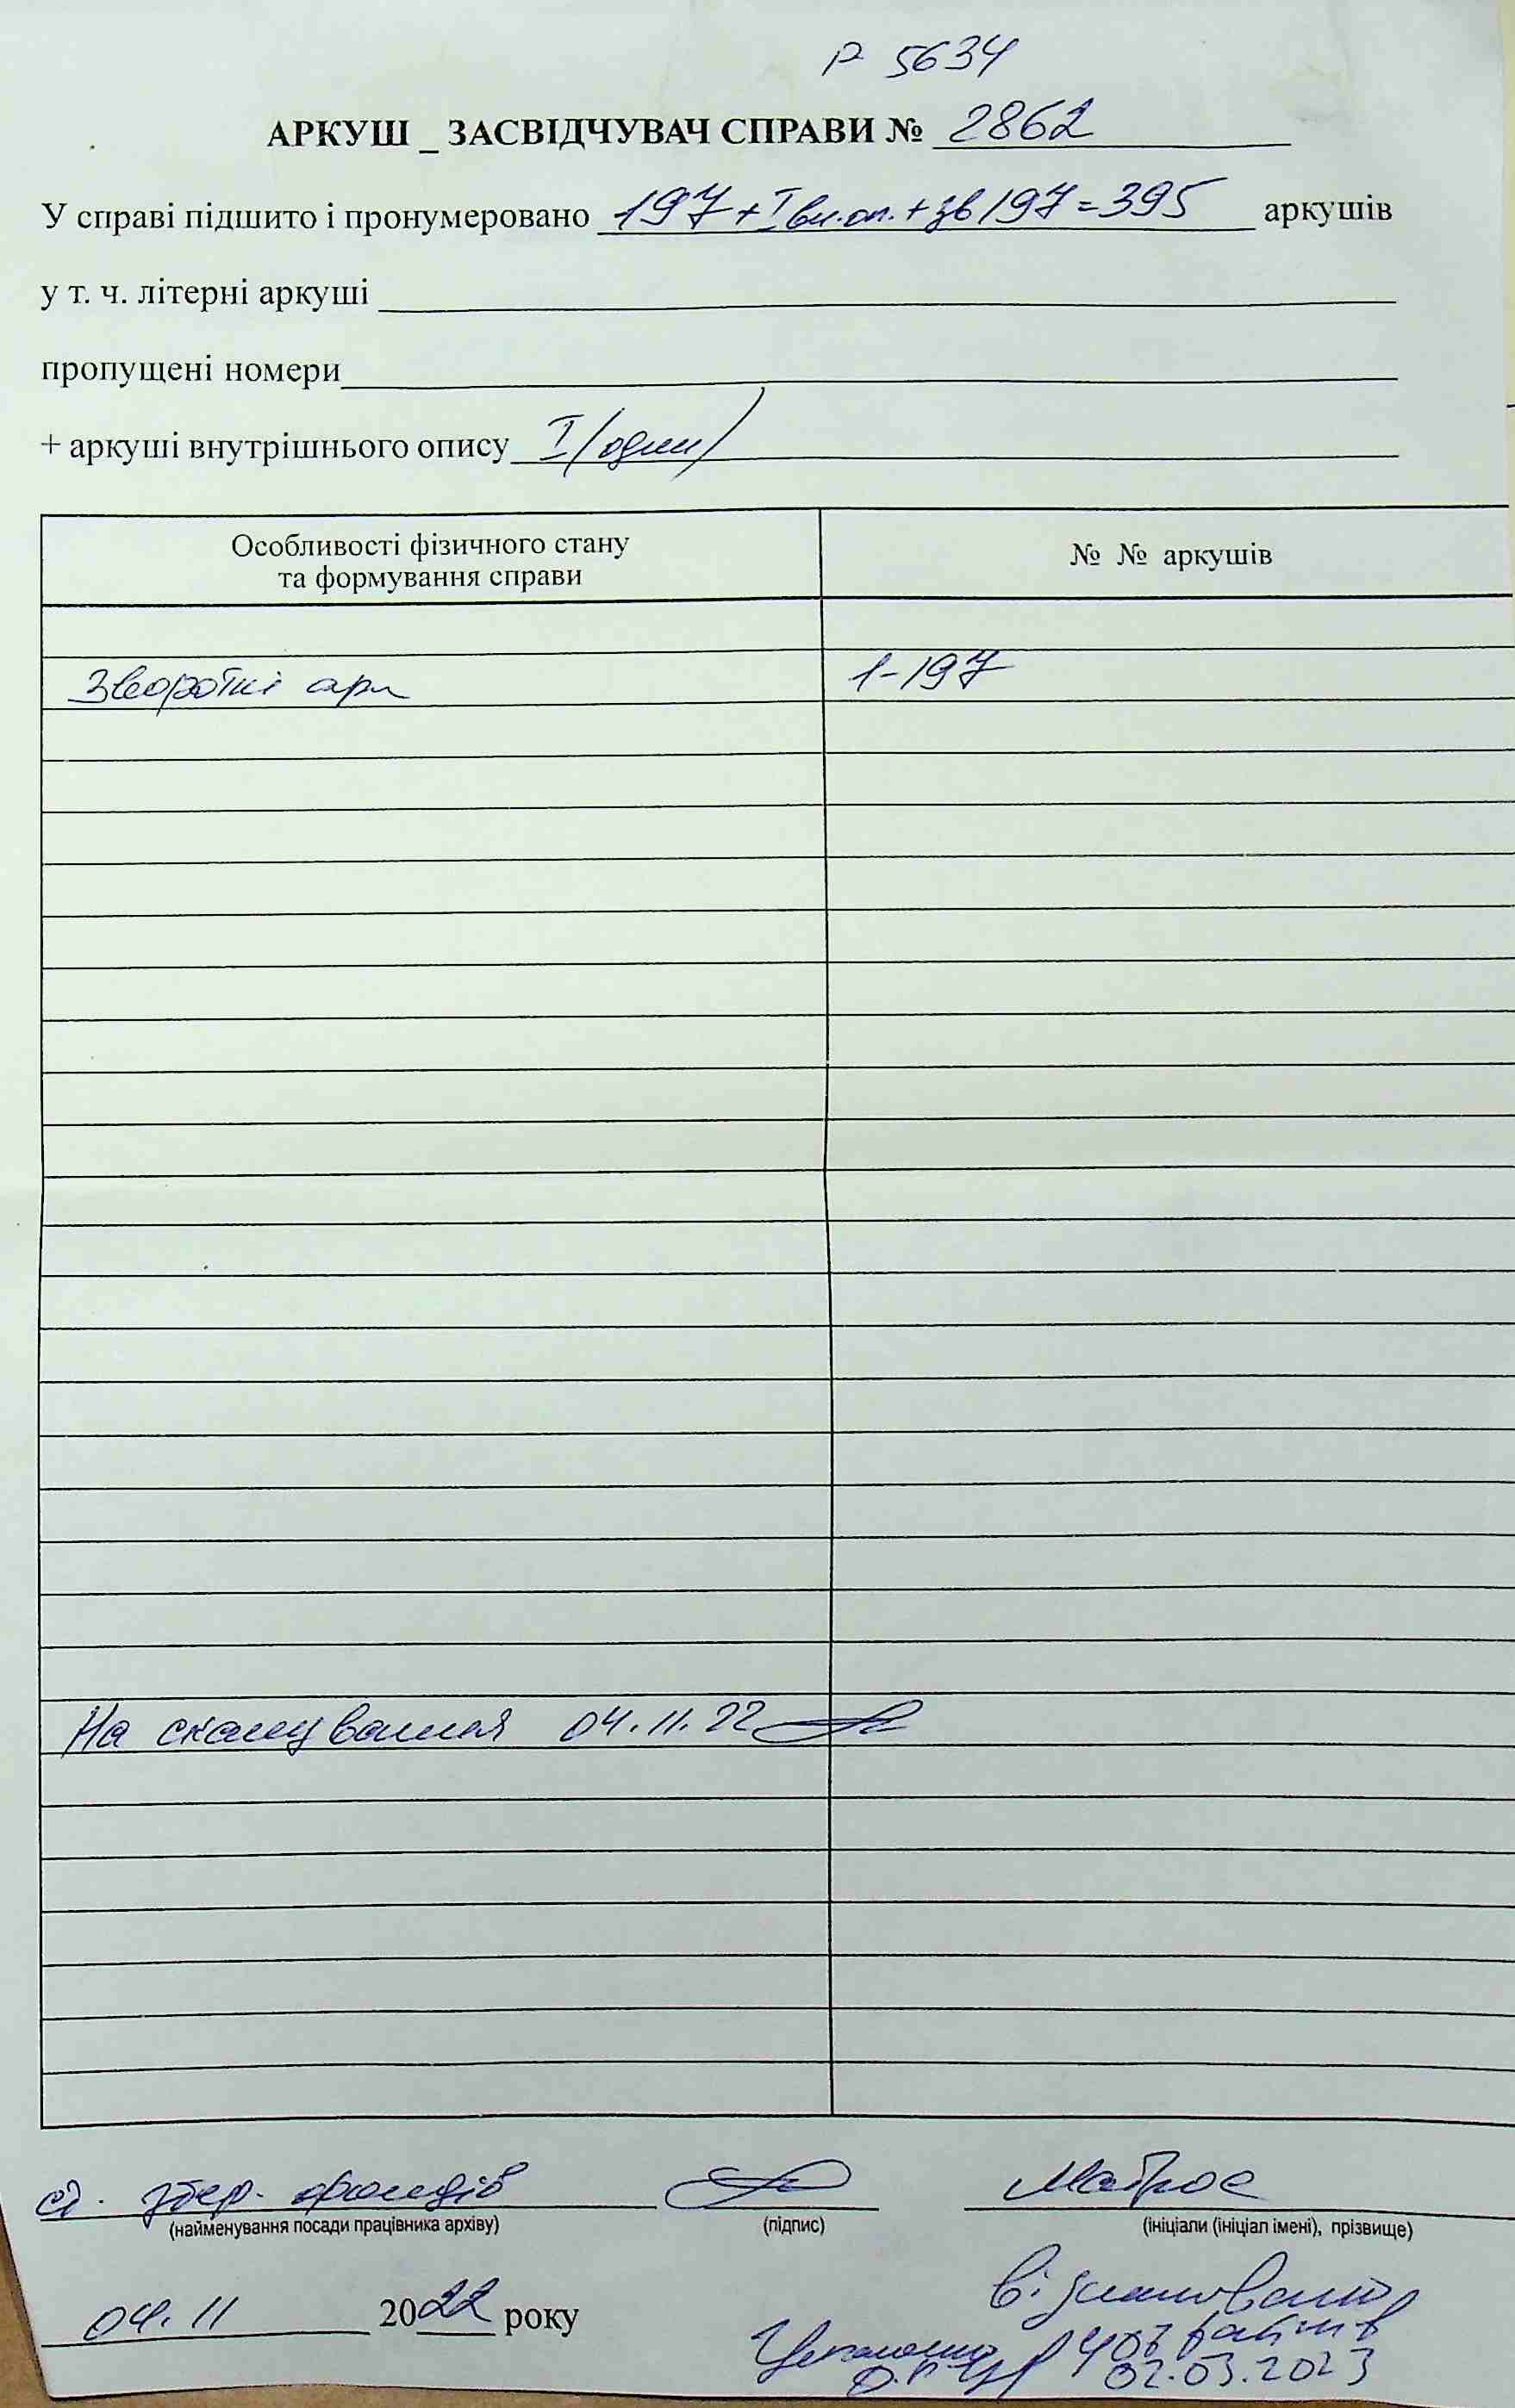 Р 5634
АРКУШ _ ЗАСВІДЧУВАЧ СПРАВИ № 2862
У справі підшито і пронумеровано 197 + I вн.оп. + зв 197 = 395 аркушів
у т. ч. літерні аркуші
пропущені номери
+ аркуші внутрішнього опису I (один)
Особливості фізичного стану
та формування справи
№ № аркушів
Зворотні арк 1-197
На сканування 04.11.22
ст. збер. фондів Матрос
(найменування посади працівника архіву) (підпис) (ініціали (ініціал імені), прізвище)
04.11 2022 року
Відскановано
файлів
02.03.2023